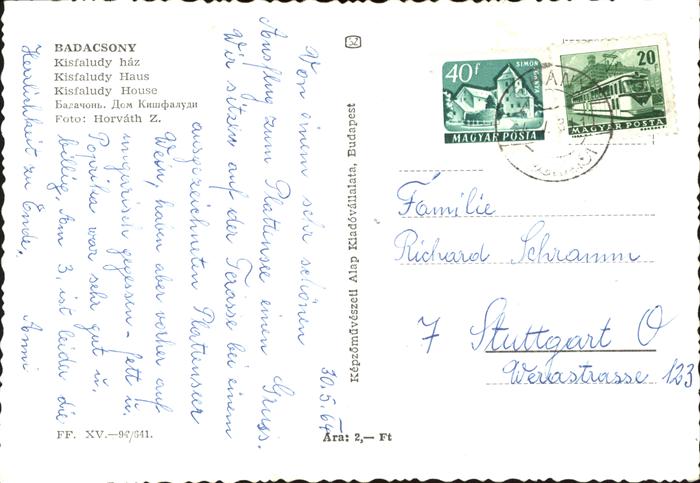 BADACSONY
Kisfaludy ház
Kisfaludy Haus
Kisfaludy House
Бадачонь. Дом Кишфалуди
Foto: Horváth Z.
30.5.64
Von einem sehr schönen
Ausflug zum Plattensee einen Gruss.
Wir sitzen auf der Terasse bei einem
ausgezeichneten Plattenseer
Wein, haben aber vorher auf
ungarisch gegessen - fett u.
Paprika war sehr gut u.
billig. Am 3. ist leider die
Herrlichkeit zu Ende.
Anni
FF. XV.—94/641.
Ára: 2,— Ft
Képzőművészeti Alap Kiadóvállalata, Budapest
SZ
40f
SIMON
TORNYA
MAGYAR POSTA
20f
MAGYAR POSTA
Familie
Richard Schramm
7 Stuttgart O
Werastrasse 123